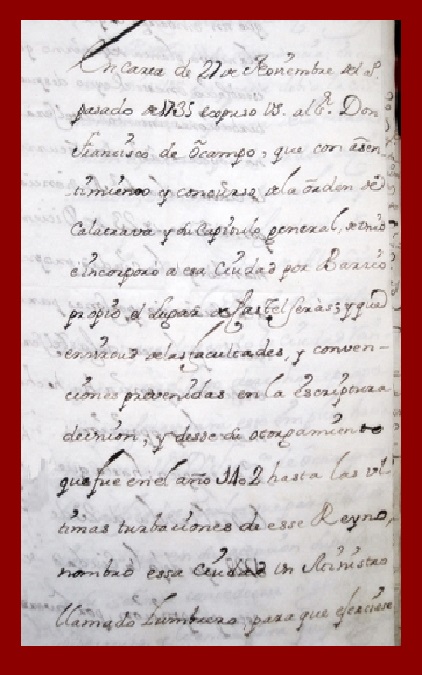 En Carta de 27 de Noviembre del P.
pasado de 1735 expuso VS. al Sr. Don
Francisco de Ocampo, que con asen
timiento y concurso de la orden de
Calatrava y su Capitulo general, se unió
è incorporò a esa Ciudad por Barrio
propio el Lugar de Castel serás; y que
en virtud de las facultades, y conven-
ciones prevenidas en la escriptura
de union, y desde su otorgamiento
que fue en el año 1402 hasta las ul
timas turbaciones de esse Reyno,
nombrò essa Ciudad un Ministro
llamado Lumbrero, para que exerciesse